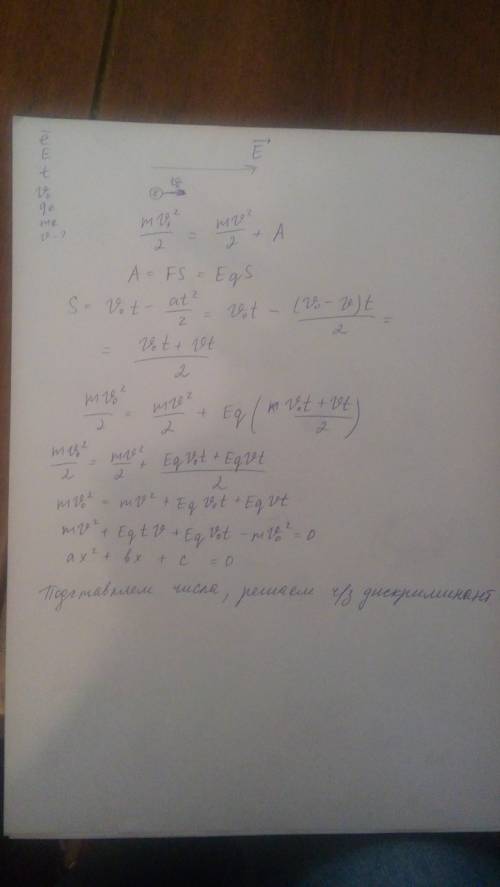 ē
E
t
v₀
q₀
mₑ
v - ?
E⃗
v⃗₀
mv₀²/2 = mv²/2 + A
A = FS = EqS
S = v₀t - at²/2 = v₀t - (v₀ - v)t/2 =
= v₀t + vt/2
mv₀²/2 = mv²/2 + Eq(m v₀t + vt/2)
mv₀²/2 = mv²/2 + Eqv₀t + Eqvt/2
mv₀² = mv² + Eqv₀t + Eqvt
mv² + Eqtv + Eqv₀t - mv₀² = 0
ax² + bx + c = 0
Подставляем числа, решаем ч/з дискриминант